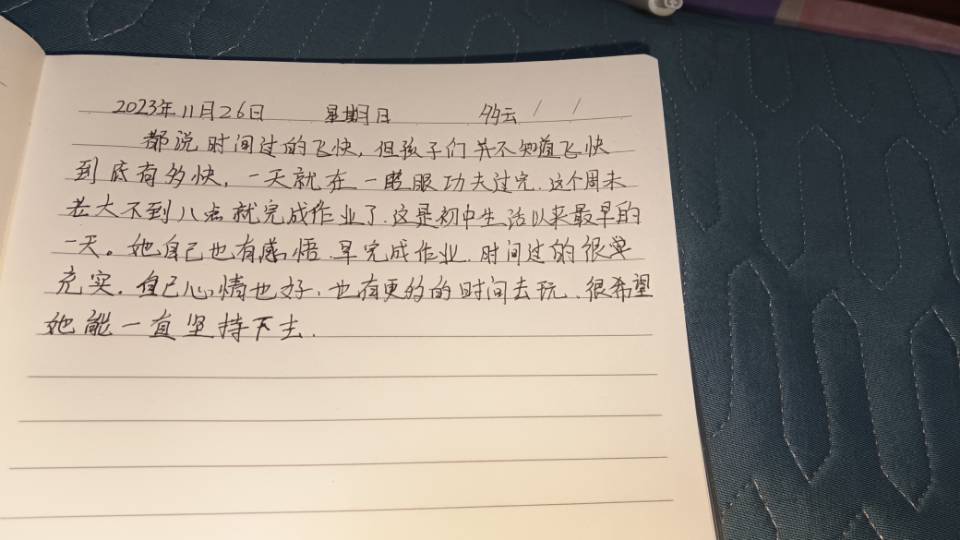 2023年11月26日 星期日 多云
都说时间过的飞快，但孩子们并不知道飞快
到底有多快，一天就在一眨眼功夫过完．这个周末
老大不到八点就完成作业了．这是初中生活以来最早的
一天。她自己也有感悟．早完成作业．时间过的很
充实．自己心情也好．也有更多的时间去玩．很希望
她能一直坚持下去．